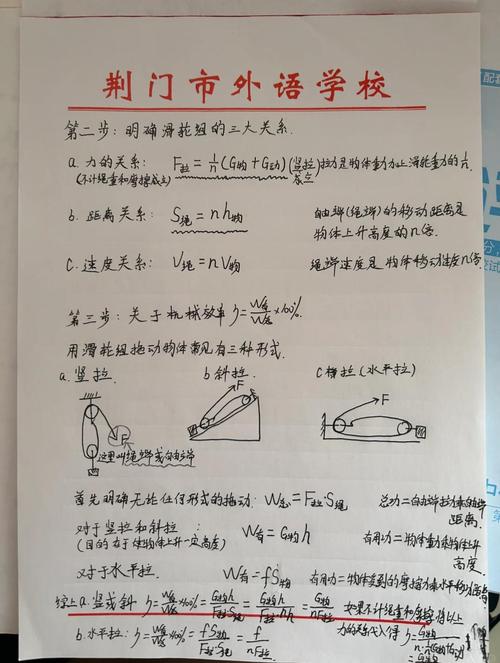 荆门市外语学校
第二步：明确滑轮组的三大关系.
a. 力的关系： F拉 = 1/n (G物 + G动) (竖拉) 拉力是物体重力加上滑轮重力的1/n.
(不计绳重和摩擦成立)
b. 距离关系： S绳 = n h物 自由端(绳端)的移动距离是
物体上升高度的n倍.
c. 速度关系： V绳 = n V物 绳端速度是物体移动速度n倍.
第三步：关于机械效率 η = W有/W总 × 100%.
用滑轮组拖动物体常见有三种形式.
a. 竖拉. b 斜拉. c 横拉 (水平拉)
F
F
F
这里叫绳端或自由端
首先明确无论任何形式的拖动： W总 = F拉·S绳 总功=自由端拉力乘自由端
距离.
对于竖拉和斜拉： W有 = G物h 有用功=物体重力乘物体上升
(目的在于使物体上升一定高度) 高度.
对于水平拉. W有 = fS物
综上 a. 竖或斜 η = W有/W总 × 100% = G物h/F拉S绳 = G物h/F拉·nh = G物/nF拉 如果不计绳重和摩擦将以上
b. 水平拉： η = W有/W总 × 100% = fS物/F拉S绳 = f/nF拉 力的关系代入得